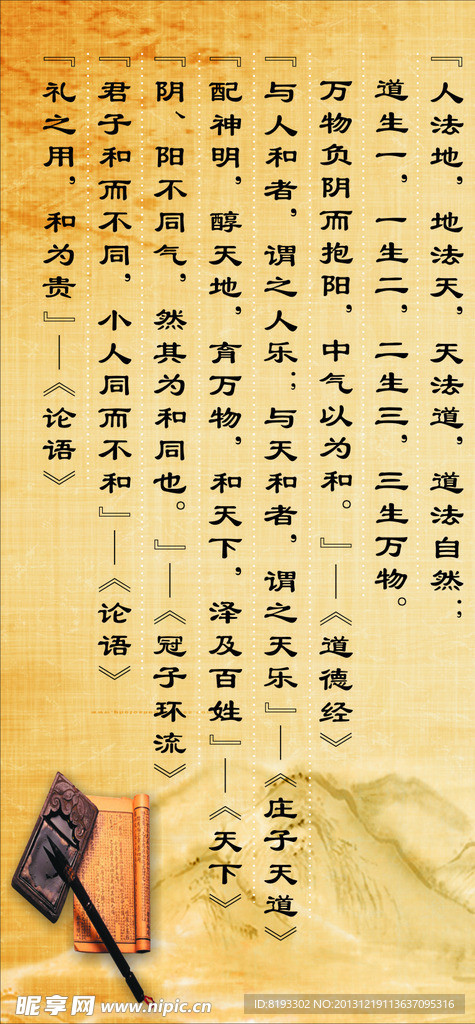 『人法地，地法天，天法道，道法自然；
道生一，一生二，二生三，三生万物。
万物负阴而抱阳，中气以为和。』——《道德经》
『与人和者，谓之人乐；与天和者，谓之天乐』——《庄子天道》
『配神明，醇天地，育万物，和天下，泽及百姓』——《天下》
『阴、阳不同气，然其为和同也。』——《冠子环流》
『君子和而不同，小人同而不和』——《论语》
『礼之用，和为贵』——《论语》
昵享网 www.nipic.cn
ID:8193302 NO:20131219113637095316